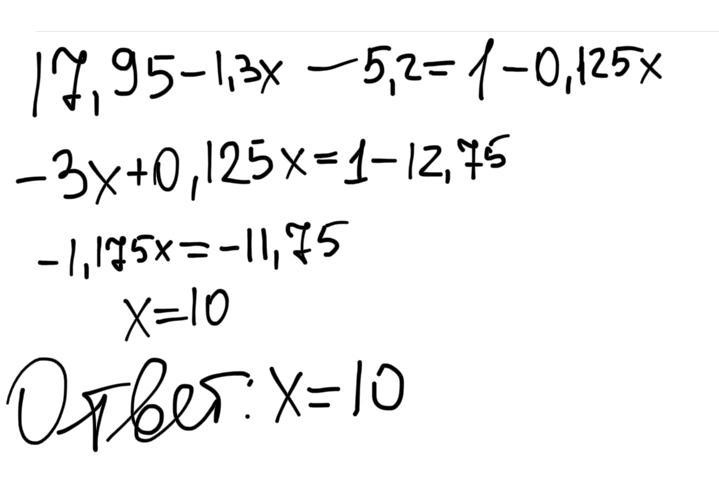 17,95-1,3x-5,2=1-0,125x
-3x+0,125x=1-12,75
-1,175x=-11,75
x=10
Ответ: x=10